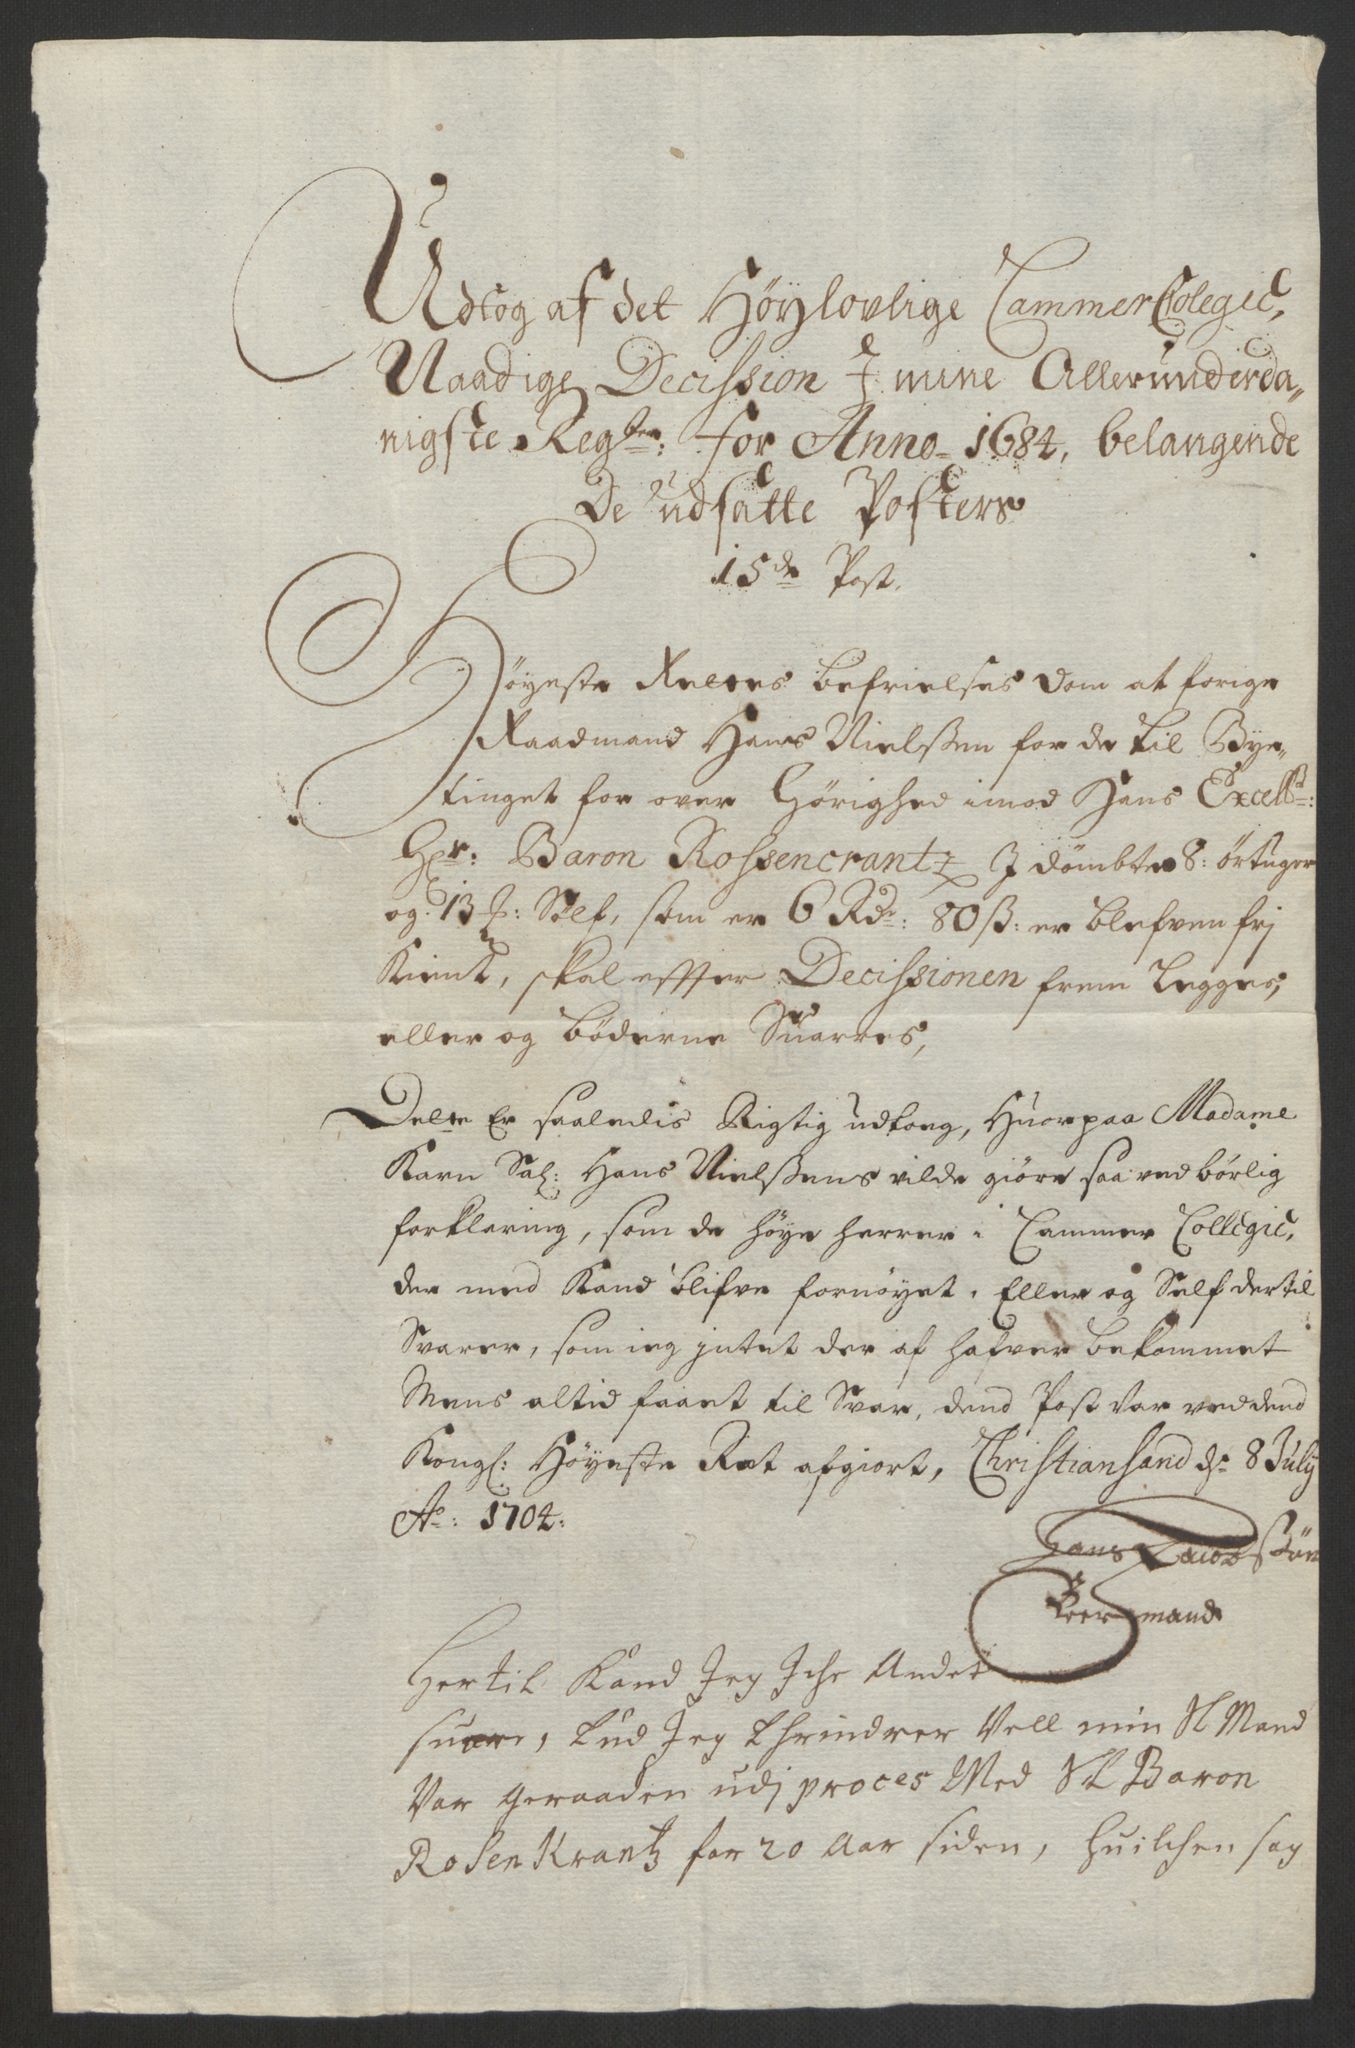 Udtog af det Höylovlige Cammer Colegie,
Naadige Decission J mine Allerunderda„
nigste Regter: for Anno 1684, belangende
De udsatte Posters
15de Post.
Höyeste Rettes befrielses dom at forige
Raadmand Hans Nielßen for de til Bye„
tinget for over Hörighed imod Hans Excell:
Hr: Baron Rossencrantz J dömbte 8: örtuger
og 13 : Sölf, som er 6 Rdr: 80 ß: er blefven frj
Kient, skal effter Decissionen frem legges,
eller og böderne Suarres,
Dette Er saaledis Rigtig udtoeg, Huor paa Madame
Karn Sal: Hans Nielßens vilde giöre saa ved börlig
forklaring, som de höye herrer i Cammer Collegie,
der med Kand blifve fornöyet, Eller og Self der til
Svarer, som ieg jntet der af hafver bekommet
Mens altid faaet til Svar, dend Post var ved dend
Kongl: Höyeste Ret afgiort, Christiansand ds 8 July
Ao: 1704:
Hans Jacobßön
Beermand
Her til Kand Jeg Iche Andet
suare, End Jeg Ehrindrer Vell min Sl Mand
Var geraaden udj proces Med Sl Baron
Rosenkrantz for 20 Aar siden, huilchen sag